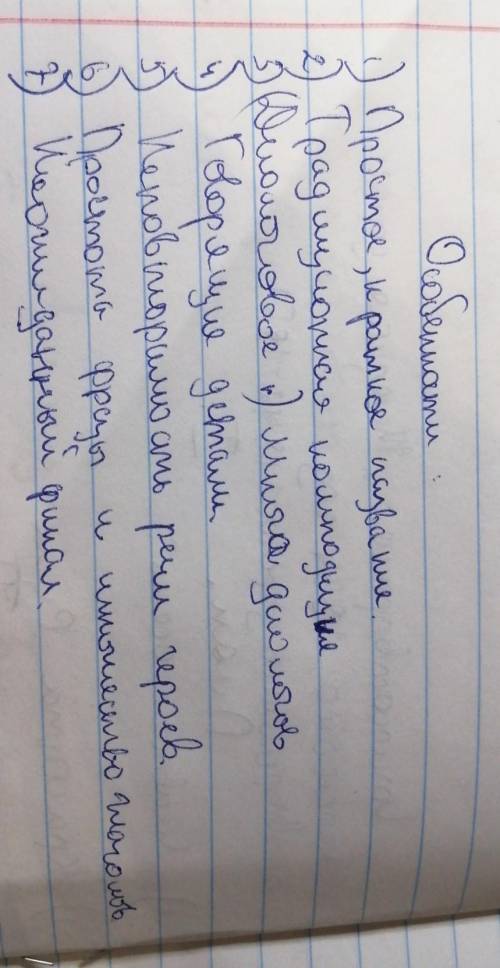 Особенности:
1) Простое, краткое название.
2) Традиционная композиция
3) (Диологовое н) Много диологов
4) Говорящие детали.
5) Неповторимость речи героев.
6) Простота фразы и множество глаголов
7) Неожиданный финал.